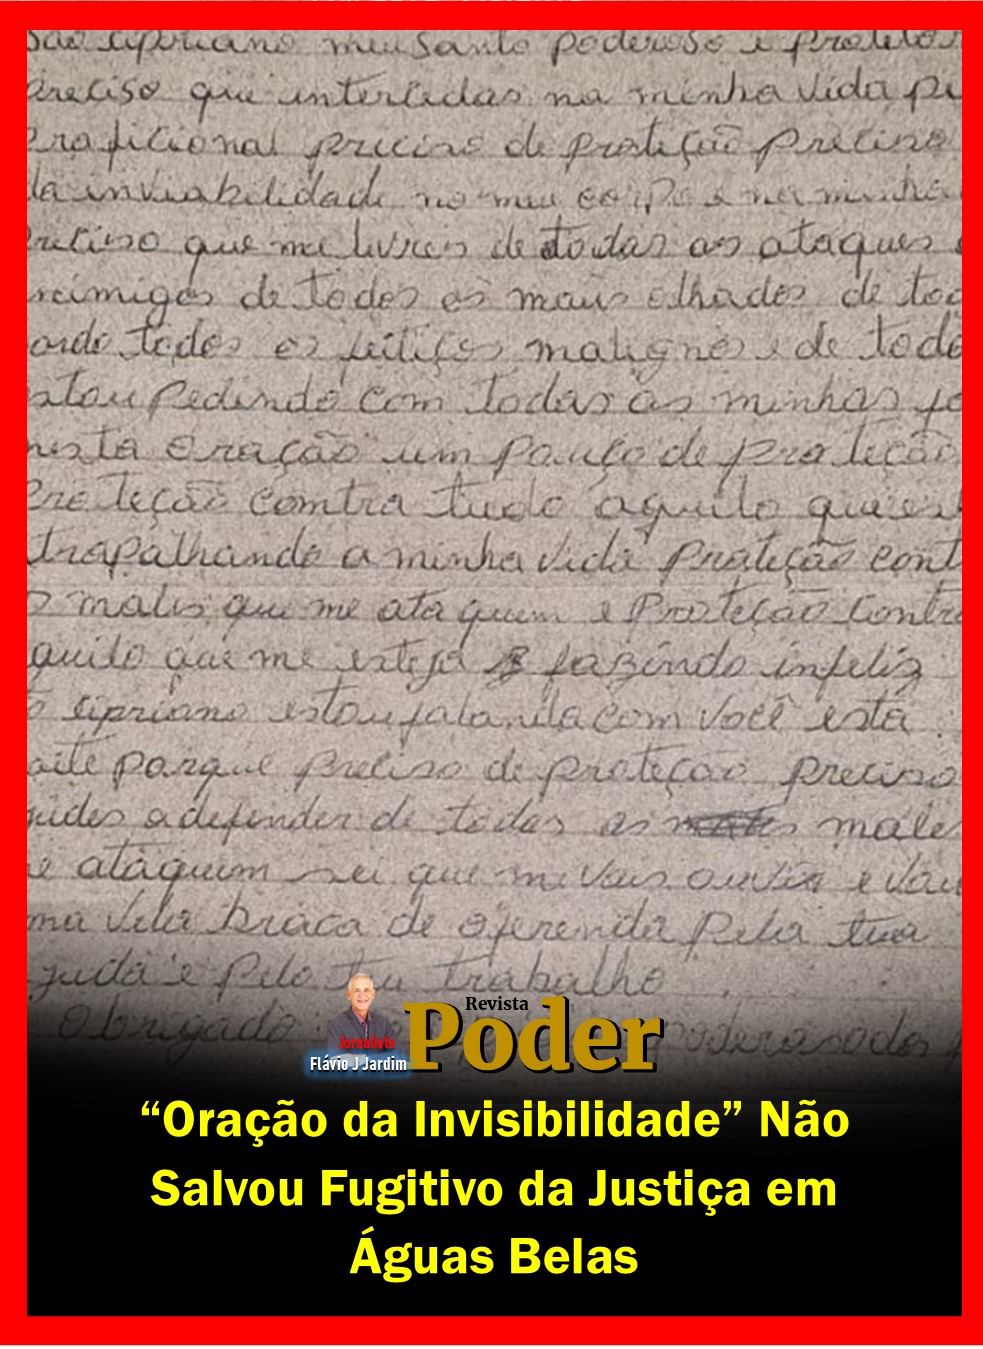 São cipriano meu santo poderoso e protetor
preciso que intercedas na minha vida pr
profissional preciso de proteção preciso
da inviabilidade no meu corpo e na minha
preciso que me livres de todas as ataques
inimigos de todos os maus olhados de tod
todos os feitiços malignos e de todo
estou pedindo com todas as minhas fo
nesta oração um pouco de proteção
Proteção contra tudo aquilo que es
trapalhando a minha vida Proteção cont
s males que me ataquem e Proteção contra
quilo que me esteja fazendo infeliz
o cipriano estou falando com você esta
oite porque preciso de proteção preciso
judes a defender de todas as males
e ataquem sei que me vais ouvir e vou
ma vela braca de oferenda pela tua
juda e pelo teu trabalho
obrigado poderosos
Jornalista
Flávio J Jardim
Revista
Poder
“Oração da Invisibilidade” Não
Salvou Fugitivo da Justiça em
Águas Belas